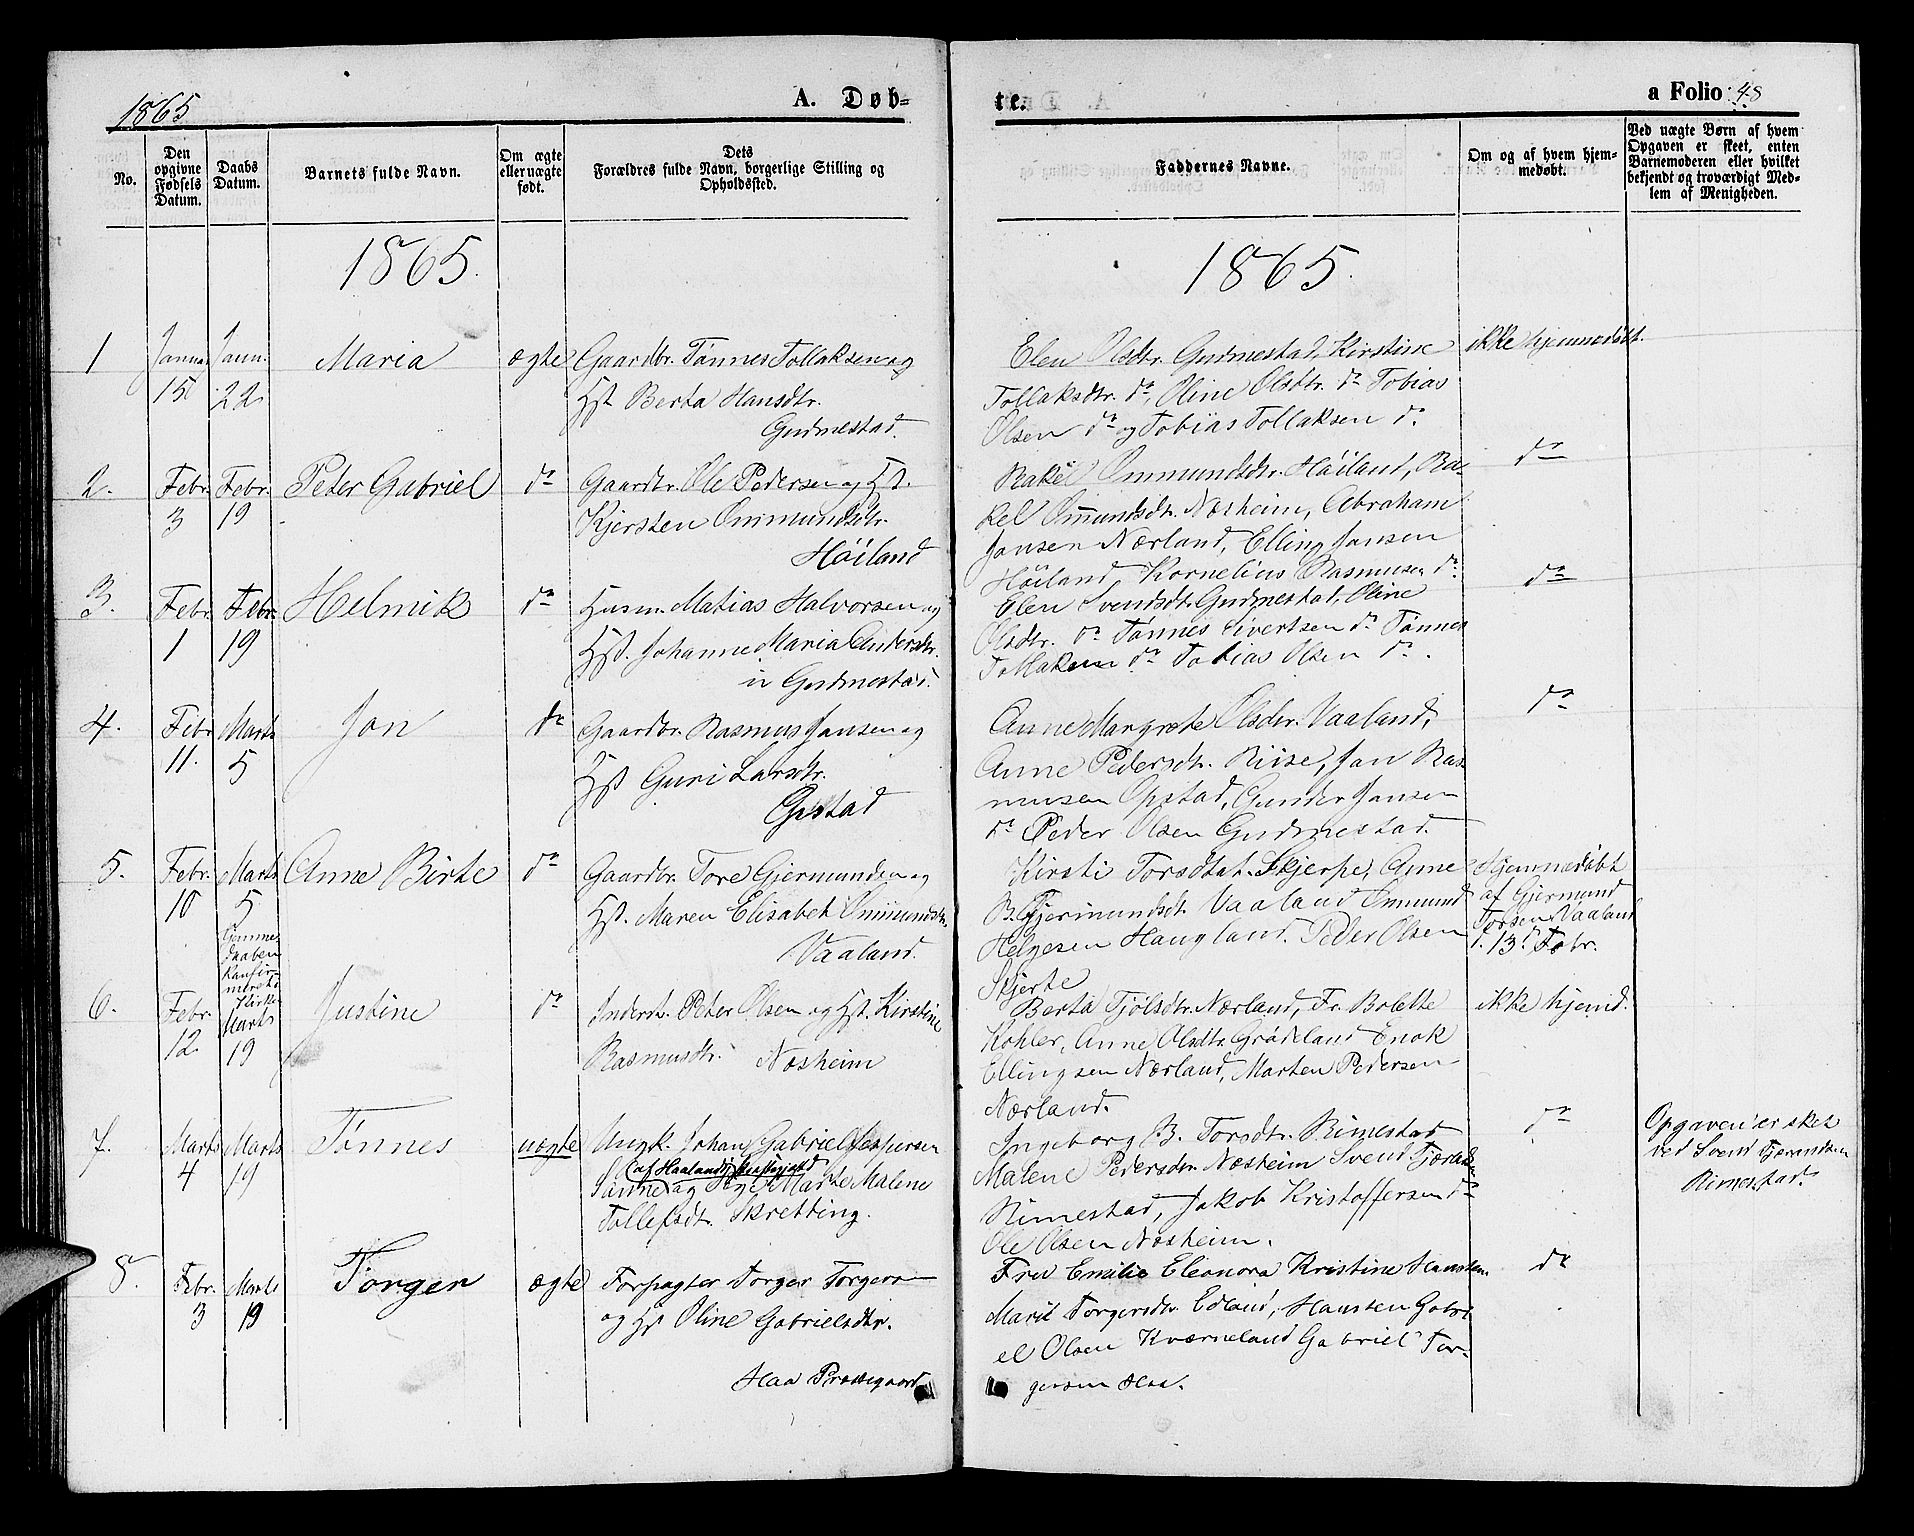 1865
A. Døb-
te.
a Folio 48
No.
Den opgivne Fødsels Datum.
Daabs Datum.
Barnets fulde Navn.
Om ægte eller uægte født.
Dets Forældres fulde Navn, borgerlige Stilling og Opholdssted.
Faddernes Navne.
Om og af hvem hjemmedøbt.
Ved uægte Børn af hvem
Opgaven er skeet, enten
Barnemoderen eller hvilket
bekjendt og troværdigt Med-
lem af Menigheden.
1865.
1865.
1
Januar
15
Janu.
22
Maria
ægte
Gaardbr. Tønnes Tollaksen og
Hst. Berta Hansdtr.
Gudmestad.
Elen Olsdtr. Gudmestad, Kirstine
Tollaksdtr. do, Oline Olsdtr. do Tobias
Olsen do og Tobias Tollaksen do
ikke hjemmedøbt.
2.
Febr.
3
Febr.
19
Peter Gabriel
do
Gaardbr. Ole Pedersen og Hst.
Kjersten Ommundsdtr.
Høiland
Rakel Ommundsdtr. Høiland, Ra-
kel Omundsdtr. Næsheim, Abraham
Jansen Nærland, Elling Jansen
Høiland, Kornelius Rasmusen do
do
3.
Febr.
1
Febr.
19
Helmik
do
Husm. Matias Halvorsen og
Hst. Johanne Maria Andersdtr.
Gudmestad.
Elen Svendsdtr. Gudmestad, Oline
Olsdtr. do Tønnes Sivertsen do Tønnes
Tollaksen do Tobias Olsen do.
do
4.
Febr
11.
Marts
5
Jon
do
Gaardbr. Rasmus Jansen og
Hst Guri Larsdtr.
Opstad
Anne Margrete Olsdtr. Vaaland,
Anne Pedersdtr. Riise, Jan Ras-
musen Opstad, Gunder Jansen
do Peder Olsen Gudmestad.
do
5.
Febr.
10
Marts
5
Hjemme-
daaben
konfir-
meret i
Kirken
Anna Birte
do
Gaardbr. Tore Gjermundsen og
Hst. Maren Elisabet Ommundsdtr.
Vaaland.
Kirsti Torsdtat. Skjerpe, Anne
B. Gjermundsdt. Vaaland Ommund
Helgesen Haugland. Peder Olsen
Skjerte
Hjemmedøbt
af Gjermund
Torsen Vaaland
d. 13de Febr.
6.
Febr.
12
Marts
19
Justine
do
Inderst. Peter Olsen og Hst. Kirstine
Rasmusdtr. Næsheim
Berta Tjølsdtr. Nærland, Fr. Bolette
Kohler, Anne Olsdtr. Grødeland Enok
Ellingsen Nærland, Marten Pedersen
Nærland.
ikke hjemd.
7.
Marts
4
Marts
19
Tønnes
uægte
Ungk. Johan Gabriel Jespersen
Sønne og Pige Marte Malene
Tollefsdtr. Skretting.
Ingeborg B. Torsdtr. Rimestad
Malene Pedersdtr. Næsheim Svend Tjerandsen
Rimestad, Jakob Kristoffersen do
Ole Olsen Næsheim.
do
Opgaven er sket
ved Svend Tjerandsen
Rimestad.
8.
Febr.
3
Marts
19
Torger
ægte
Forpagter Torger Torgersen
og Hst Oline Gabrielsdtr.
Haa Præstegaard
Fru Emilie Eleonora Kristine Hansten
Marit Torgersdtr. Edland, Hansten Gabri-
el Olsen Kværneland Gabriel Tor-
gersen Haa.
do